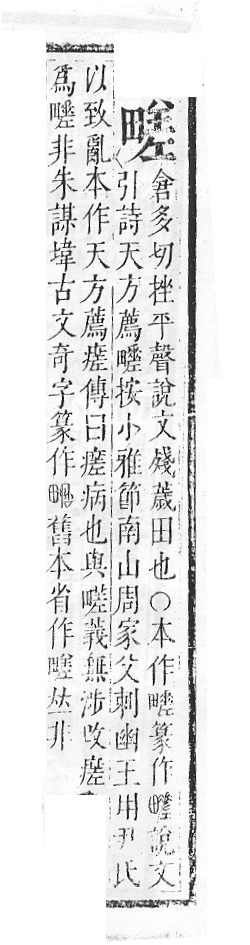 㽨
倉多切挫平聲說文殘薉田也○本作㽨篆作說文
引詩天方薦㽨按小雅節南山周家父刺幽王用尹氏
以致亂本作天方薦瘥傳曰瘥病也與㽨義無涉改瘥
爲㽨非朱謀㙔古文奇字篆作舊本省作㽨𠀤非